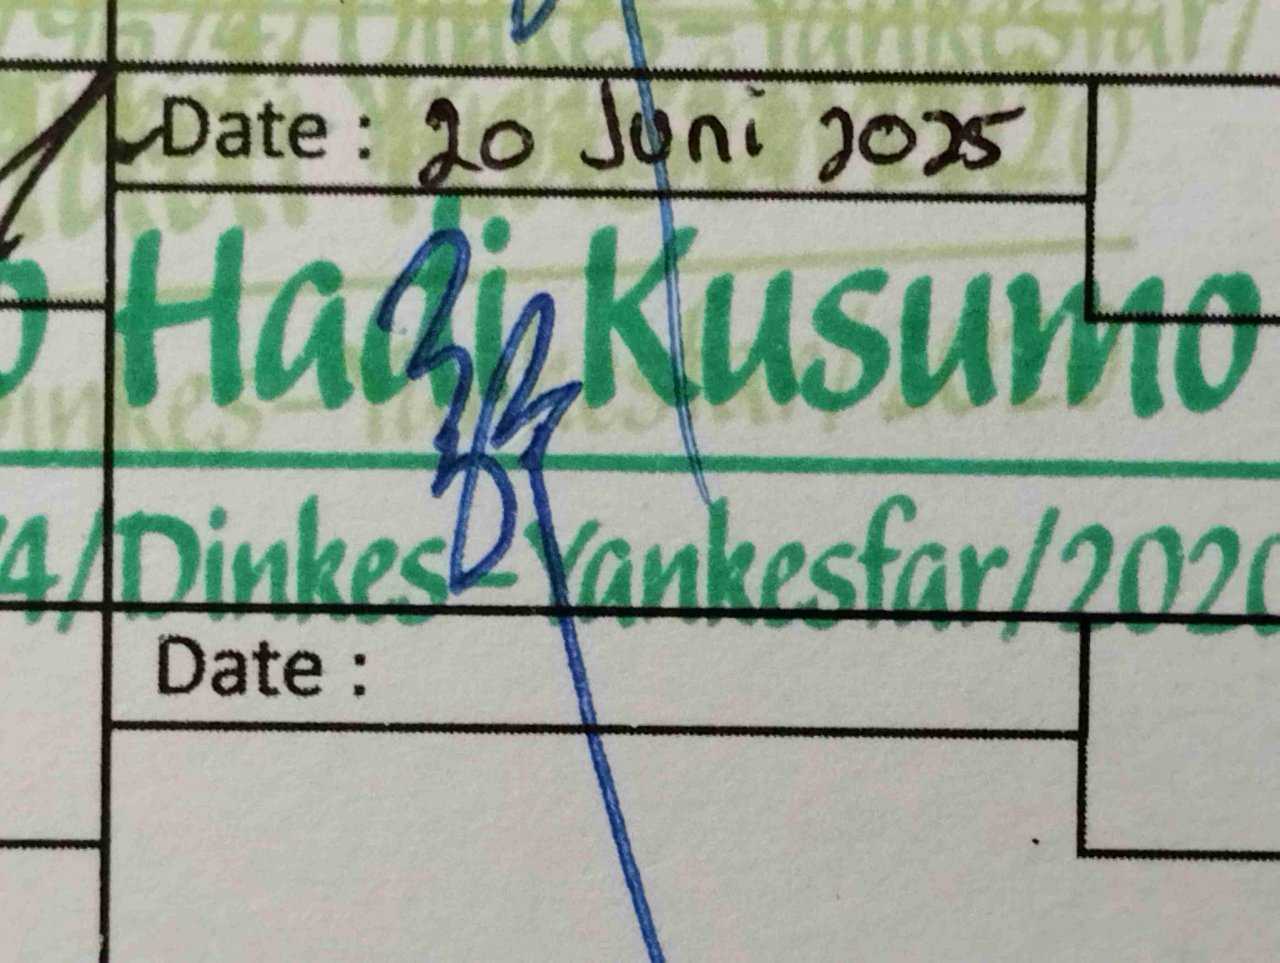 Date : 20 Juni 2025
Hadi Kusumo
4/Dinkes-Yankesfar/2020
Date :